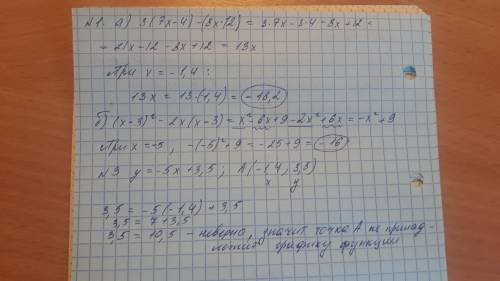 №1. а) 3(7x-4)-(8x-12) = 3·7x-3·4-8x+12 =
= 21x-12-8x+12 = 13x
При x = -1,4 :
13x = 13·(-1,4) = -18,2
б) (x-3)² - 2x(x-3) = x²-6x+9-2x²+6x = -x²+9
При x=-5, -(-5)²+9 = -25+9 = -16
№3 y = -5x+3,5 ; A(-1,4; 3,5)
x y
3,5 = -5·(-1,4) + 3,5
3,5 = 7+3,5
3,5 = 10,5 - неверно, значит точка A не принад-
лежит графику функции